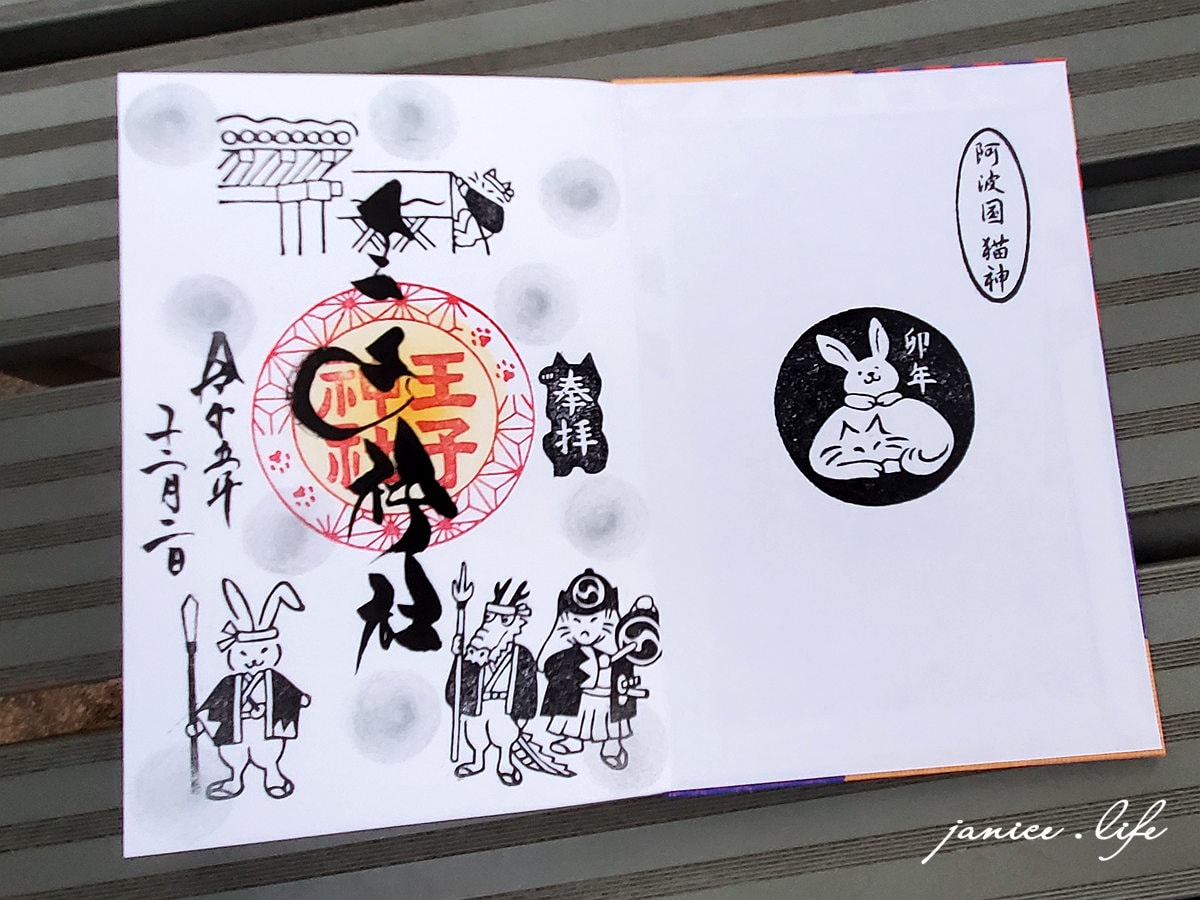 阿波国 猫神
卯年
奉拝
王子
神社
王子神社
令和五年
十二月二日
janice.life